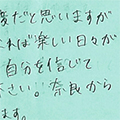 変だと思いますが
れば楽しい日々が
自分を信じて
さい。奈良から
ます。